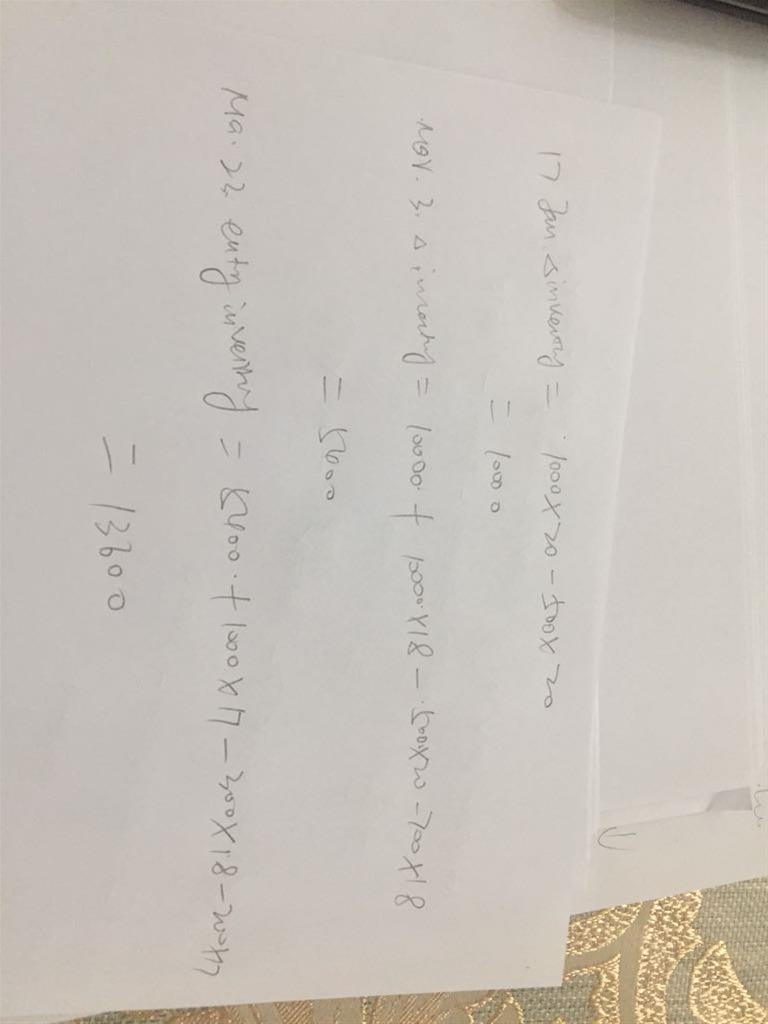 17 Jan. Δ inventory = 1000 x 20 - 500 x 20
= 1000
Mar. 3. Δ inventory = 10000 + 1000 x 18 - 500 x 20 - 700 x 18
= 5400
Ma. 23. enty inventory = 5400 + 1000 x 17 - 300 x 18 - 200 x 17
= 13600